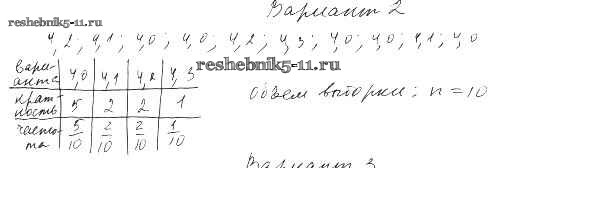 reshebnik5-11.ru
Вариант 2
4,2; 4,1; 4,0; 4,0; 4,2; 4,3; 4,0; 4,0; 4,1; 4,0
reshebnik5-11.ru
вари-анта 4,0 4,1 4,2 4,3
крат-ность 5 2 2 1
часто-та 5/10 2/10 2/10 1/10
Объем выборки: n = 10
Вариант 3